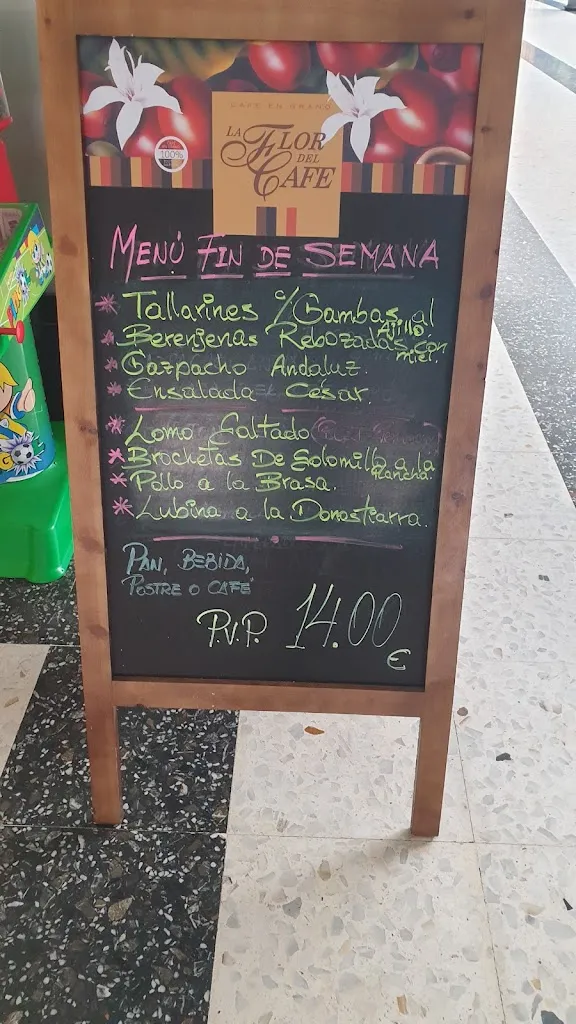 CAFÉ EN GRANO
LA FLOR
DEL
CAFÉ
100%
MENÚ FIN DE SEMANA
* Tallarines c/Gambas al Ajillo
* Berenjenas Rebozadas con miel
* Gazpacho Andaluz.
* Ensalada César.
* Lomo Saltado
* Brochetas De Solomillo a la Plancha.
* Pollo a la Brasa.
* Lubina a la Donostiarra.
PAN, BEBIDA,
POSTRE O CAFÉ
P.V.P. 14.00
€